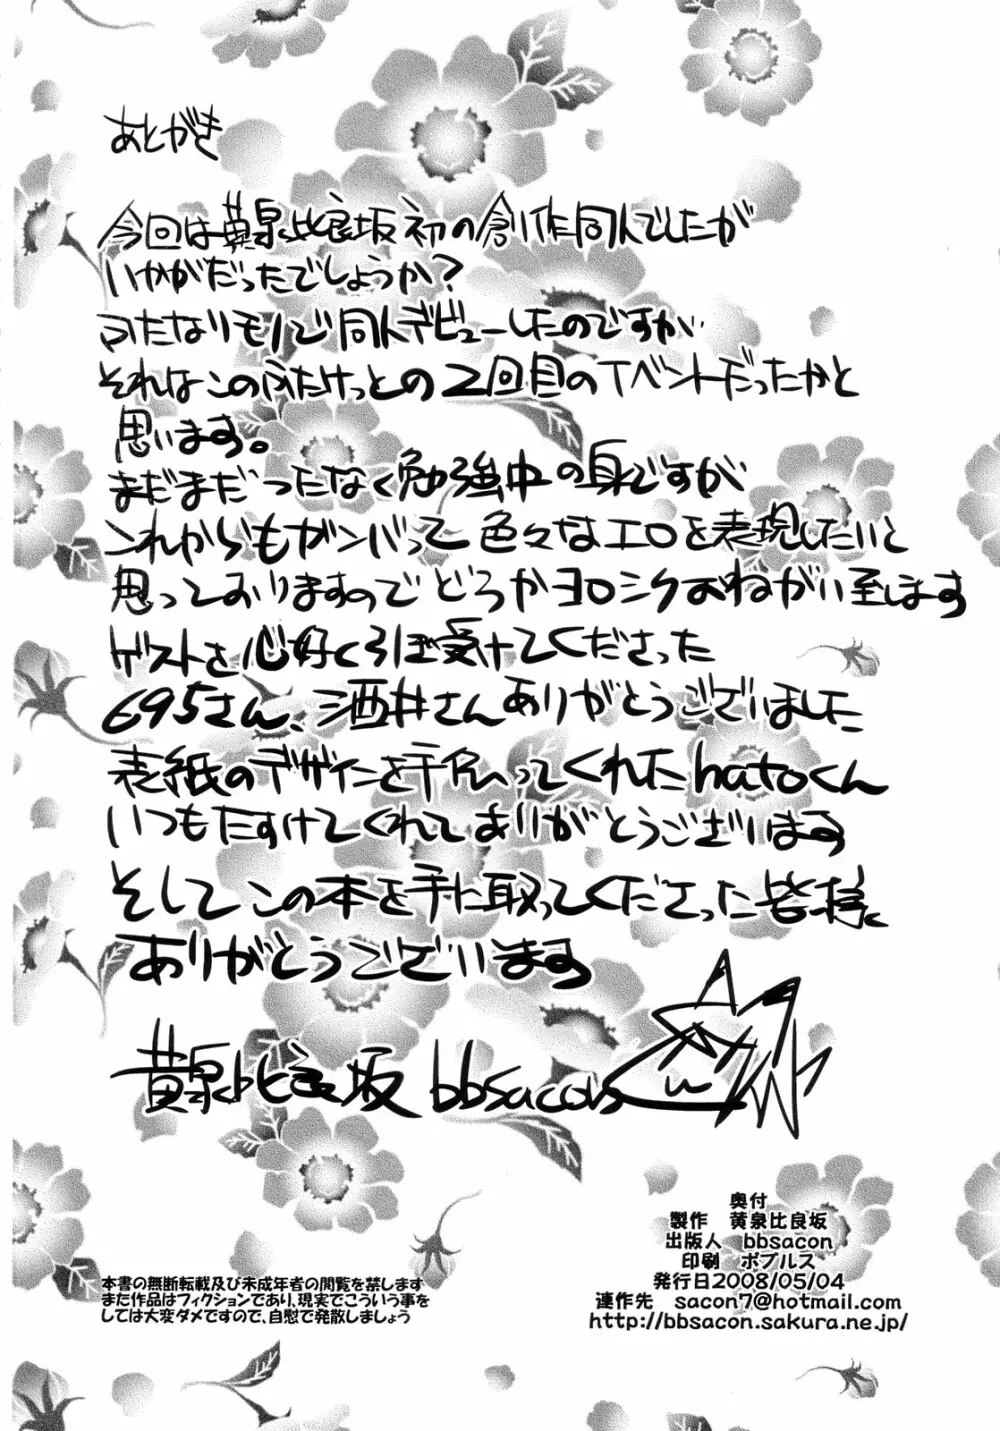 あとがき
今回は黄泉比良坂初の創作同人でしたが
いかがだったでしょうか？
ふたなりモノで同人デビューしたのですが
それはこのふたけっとの2回目のイベントだったかと
思います。
まだまだつたなく勉強中の身ですが
これからもガンバって色々なエロを表現したいと
思っておりますのでどうかヨロシクおねがい至します
ゲストを心好くろぼ受けてくださった
695さん、酒井さんありがとうございました
表紙のデザインを手伝ってくれたhatoくん
いつもたすけてくれてありがとうございます
そしてこの本を手に取ってくださった皆様
ありがとうございます
黄泉比良坂 bbsacon
奥付
製作 黄泉比良坂
出版人 bbsacon
印刷 ポプルス
発行日2008/05/04
連作先 sacon7@hotmail.com
http://bbsacon.sakura.ne.jp/
本書の無断転載及び未成年者の閲覧を禁します
また作品はフィクションであり、現実でこういう事を
しては大変ダメですので、自慰で発散しましょう